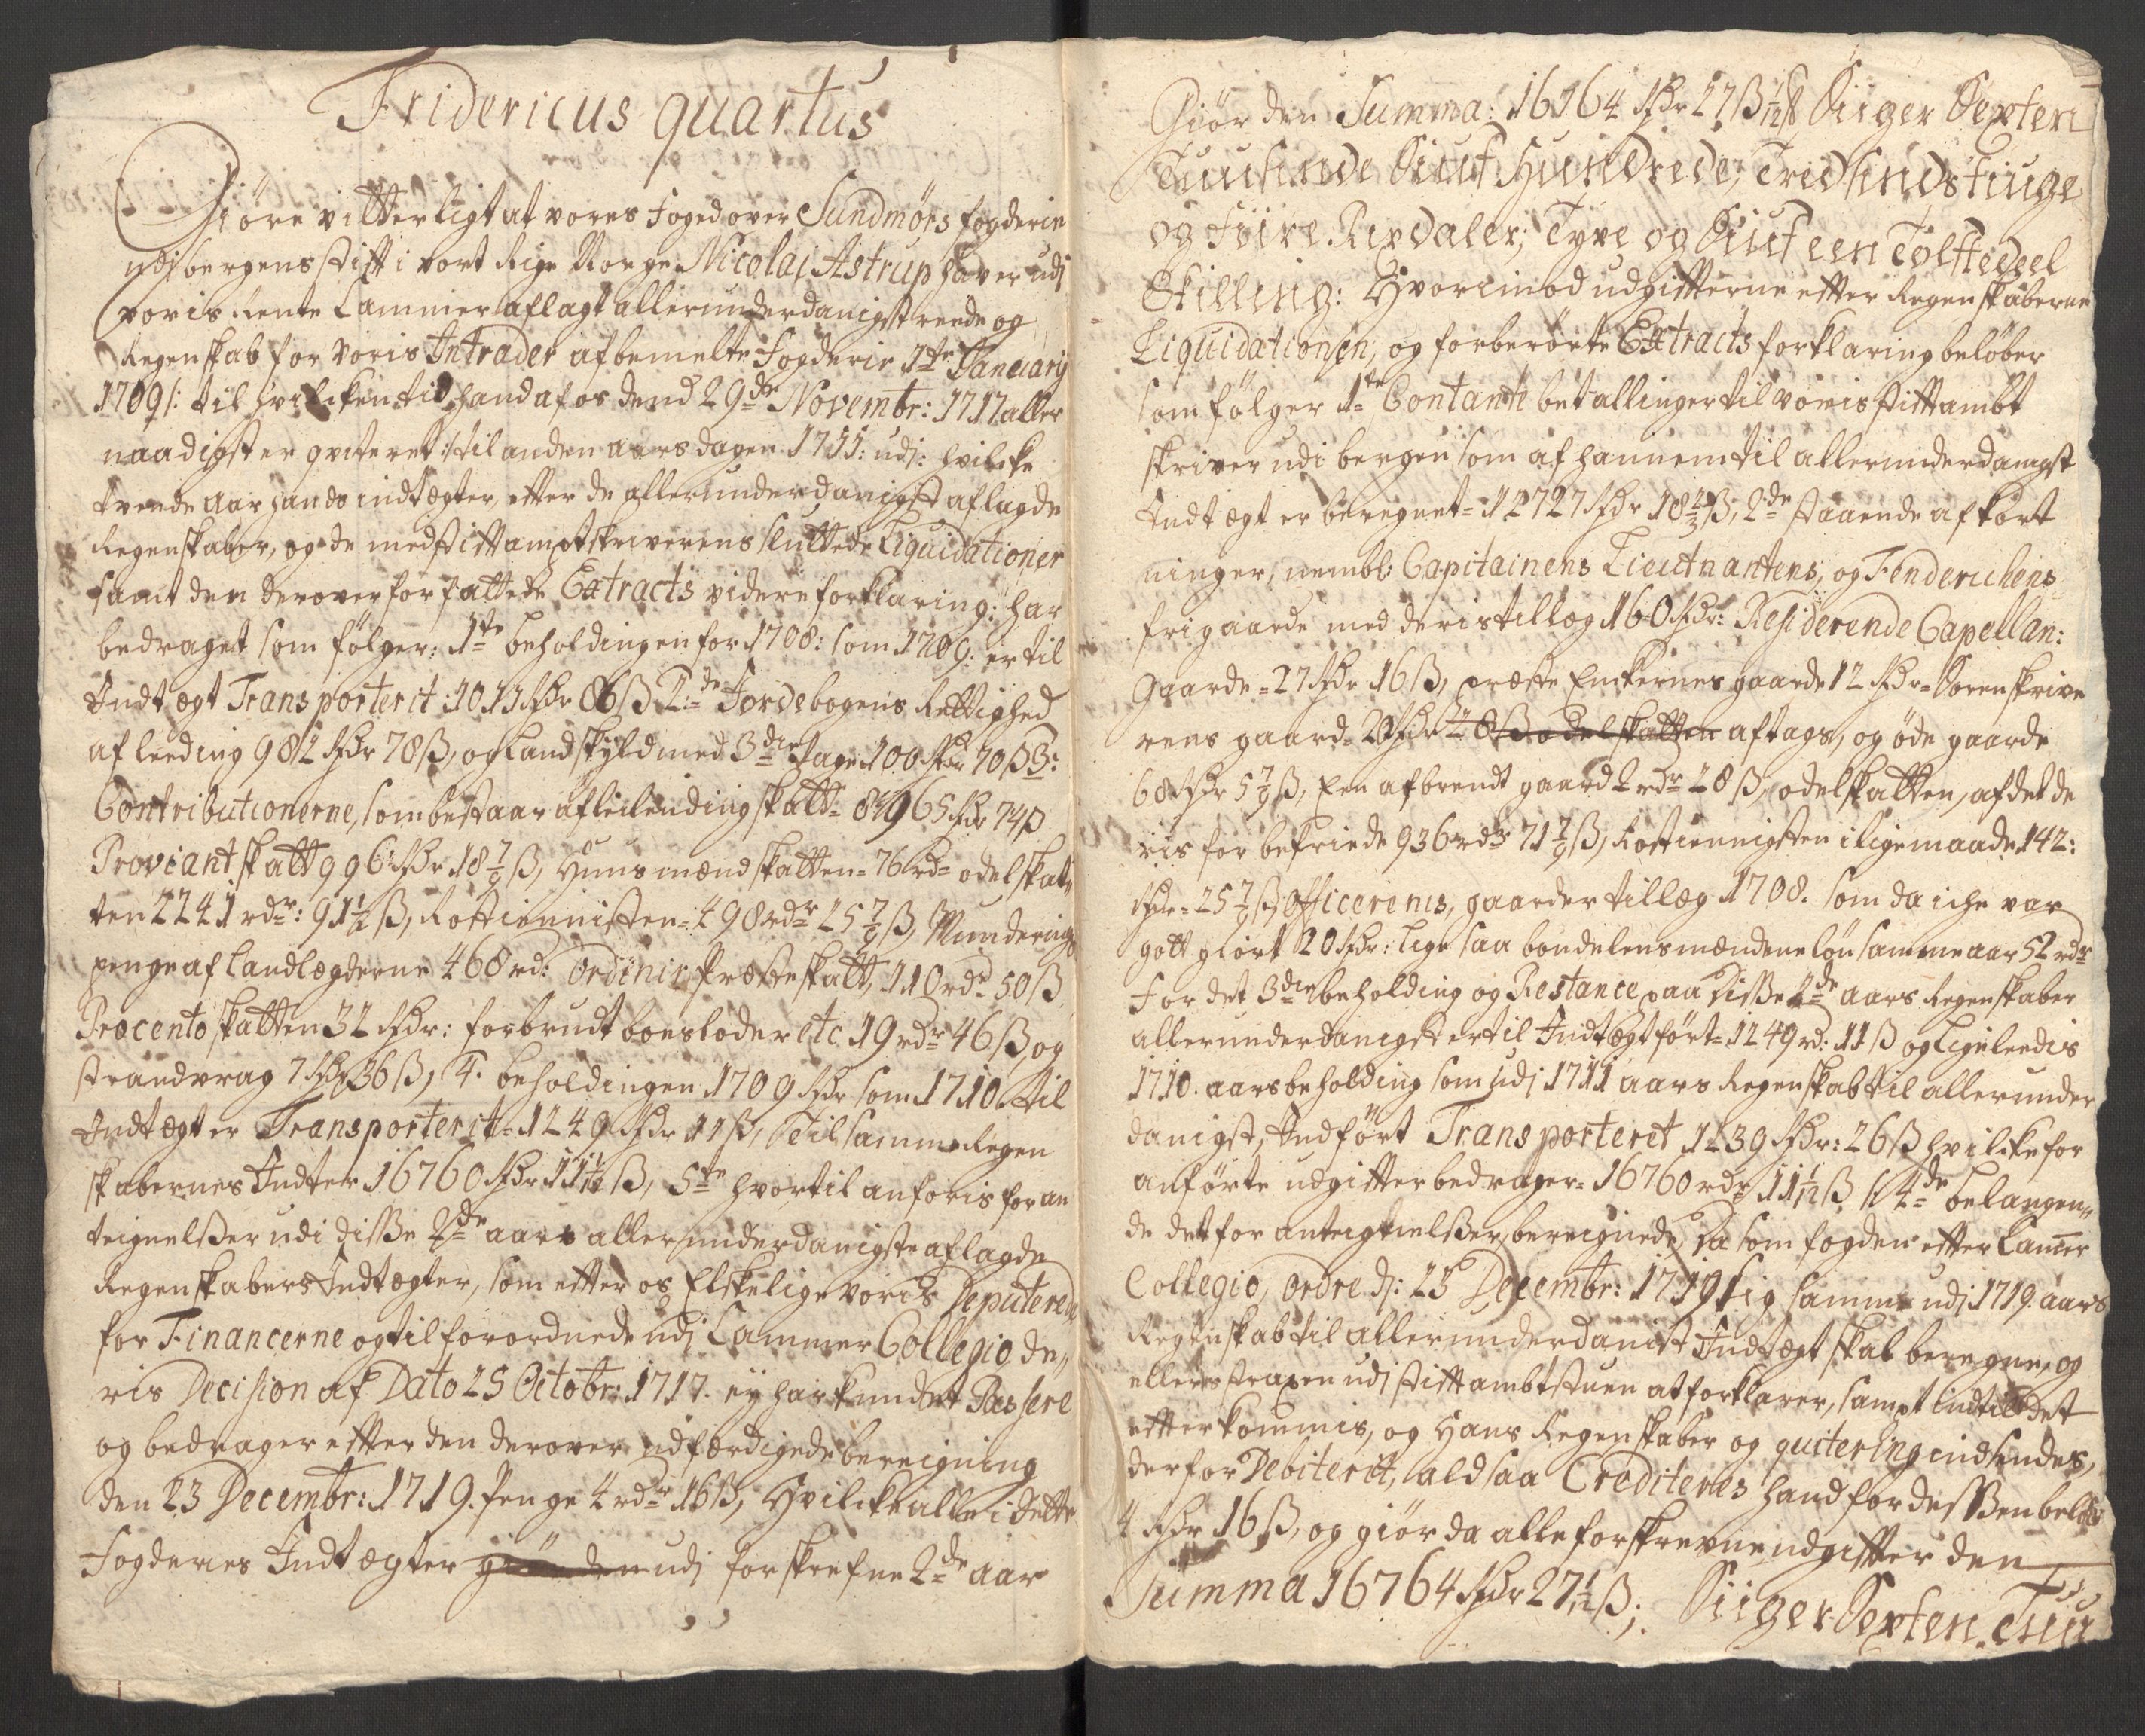 Fridericus quartus
Giöre vitterligt at vores foged over Sundmörs fogderie
udj bergens stift i vort Rige Norge Nicolaj Astrup haver udj
voris Rente Cammer aflagt allerunderdanigst reede og
Regenskab for voris Intrader af bemelte fogderie 1te Januarij
1709 /: til hvilcken tid hand af os dend 29de Novembr: 1717 aller
naadigst er qviteret :/ til anden aarsdagen 1711: udj: hvilcke
tvende aar hands indtægter, efter de allerunderdanigst aflagde
Regenskaber, og de med stiftamptskriverens sluttede Liquidationer
samt den derover forfattede Extracts videre forklaring: har
bedraget som følger: 1te beholdingen for 1708: som 1709: er til
Indtægt Transporterit: 1011 Rdr 86 ß 2de Jordebogens Rettighed
af leeding 982 Rdr 78 ß, og Landskyld med 3die Tage 100 Rdr 70 ß 3:
Contributionerne, som bestaar af leilendingskatt= 8965 Rdr 74 ß
Proviantskatt 996 Rdr 18 7/9 ß, Huusmændskatten= 76 rd= odelskat„
ten 2241 rdr: 91 1/2 ß, Rostiennisten= 498 rdr 25 7/9 ß, Munderings
penge af Landlægderne 468 rd: Ordinir Præsteskatt, 110 rdr 50 ß
Procento skatten 32 Rdr: forbrudt boesloder etc 19 rdr 46 ß og
strandvrag 7 Rdr 36 ß, 4. beholdingen 1709 Rdr som 1710 til
Indtægt er Transporterit= 1249 Rdr 11 ß, Er til samme Regen
skabernes Indter 16760 Rdr 11 1/12 ß, 5te hvortil anføris for an
teignelßer udi diße 2de aars allerunderdanigste aflagde
Regenskabers Indtægter, som efter os Elskelige voris Deputerede
for Financerne og tilforordnede udj Cammer Collegio de„
ris Decision af Dato 25 Octobr: 1717. ej har kundet Passere
og bedrager efter den derover udfærdigede bereigning
den 23 Decembr: 1719. Penge 4 rdr 16 ß, Hvilcke alle i dette
fogderies Indtægter giör den udj forskrefne 2de aar
Giör den Summa: 16764 Rdr 27 1/12 ß Siiger Sexten
Tuusinde Siuf Hundrede, Tredsindstiuge
og Fiire Rixdaler, Tyve og Siuf een Tolftedeel
Skilling: Hvorimod udgifterne efter Regenskaberne
Liquidationen, og forberörte Extracts forklaring beløber
som følger 1te Contante betallinger til voris stiftambt
skriver udi bergen som af hannem til allerunderdanigst
Indtægt er beregnet= 12727 Rdr 18 2/3 ß, 2de staaende afkort
ninger, nembl: Capitainens Lieutnantens, og Fenderichens
frigaarde med deris tillæg 160 Rdr: Residerende Capellan:
Gaarde= 27 Rdr 16 ß, Præste Enckernes gaarde 12 Rdr= Sorenskrive
rens gaard= 20 Rdr odelskatten aftags, og øde gaarde
68 Rdr 5 7/9 ß, Een afbrendt gaard 2 rdr 28 ß, odelskatten, af det de
ris for befriede 936 rdr 71 7/9 ß, Rostiennisten i ligemaade 142:
Rdr= 25 7/9 ß, Officerenis, gaarder tillæg 1708. som da iche var
gott giort 20 Rdr: Lige saa bondelensmændene løn samme aar 52 rdr
For det 3die beholding og Restance paa diße 2de aars Regenskaber
allerunderdanigst er til Indtægt ført= 1249 rd: 11 ß og Ligeleedis
1710. aars beholding som udj 1711 aars Regenskab til allerunder
danigst, Indført Transporterit 1239 Rdr: 26 ß hvilcke for
anförte udgifter bedrager= 16760 rdr 11 1/12 ß // 4de belangen„
de det for anteigtnelßer, bereignede, da som fogden efter Camer
Collegio, ordre dj: 23 Decembr: 1719 sig samme udj 1719. aars
Regenskab til allerunderdanigst Indtægt skal beregne, og
ellers straxen udj stiftambtstuen at forklarer, sampt indtil det
efterkommis, og Hans Regenskaber og quitering indsendes,
derfor Debiterit, aldsaa Crediteres hand for desßen beløb
4 Rdr 16 ß, og giör da alle forskrevne udgifter den
Summa 16764 Rdr 27 1/12 ß; Siiger Sexten Tuu